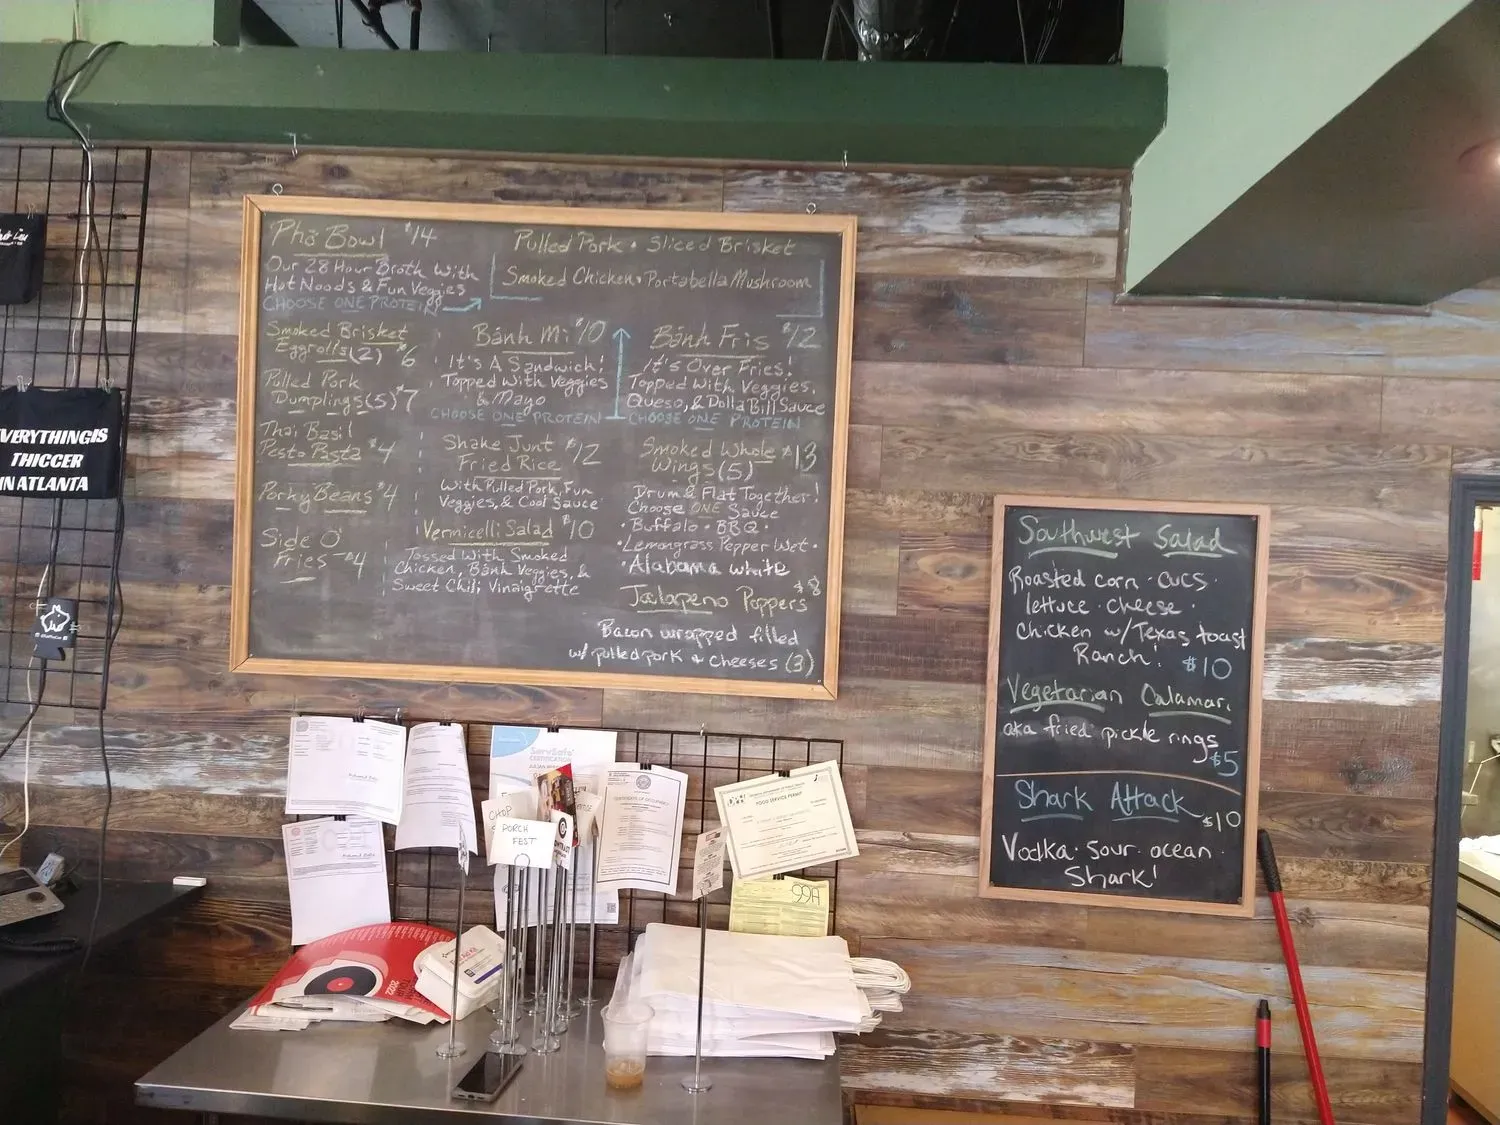 Phở Bowl $14
Our 28 Hour Broth With
Hot Noods & Fun Veggies
CHOOSE ONE PROTEIN
Pulled Pork • Sliced Brisket
Smoked Chicken • Portabella Mushroom
Smoked Brisket
Eggrolls (2) $6
Pulled Pork
Dumplings (5) $7
Thai Basil
Pesto Pasta $4
Porky Beans $4
Side O'
Fries $4
Bánh Mi $10
It's A Sandwich!
Topped With Veggies
& Mayo
CHOOSE ONE PROTEIN
Shake Junt $12
Fried Rice
With Pulled Pork, Fun
Veggies, & Cool Sauce
Vermicelli Salad $10
Tossed With Smoked
Chicken, Bánh Veggies, &
Sweet Chili Vinaigrette
Bánh Fris $12
It's Over Fries!
Topped With Veggies,
Queso, & Dolla Bill Sauce
CHOOSE ONE PROTEIN
Smoked Whole $13
Wings (5)
Drum & Flat Together!
Choose ONE Sauce
• Buffalo • BBQ •
• Lemongrass Pepper Wet •
• Alabama white
Jalapeno Poppers $8
Bacon wrapped filled
w/ pulled pork + cheeses (3)
Southwest Salad
Roasted corn · cucs ·
lettuce · cheese ·
chicken w/ Texas toast
Ranch! $10
Vegetarian Calamari
aka fried pickle rings
$5
Shark Attack
$10
Vodka · sour · ocean ·
Shark!
VERYTHING IS
THICCER
IN ATLANTA
ServSafe
CERTIFICATION
CERTIFICATE OF OCCUPANCY
FOOD SERVICE PERMIT
CHOP
PORCH
FEST
99A
2022